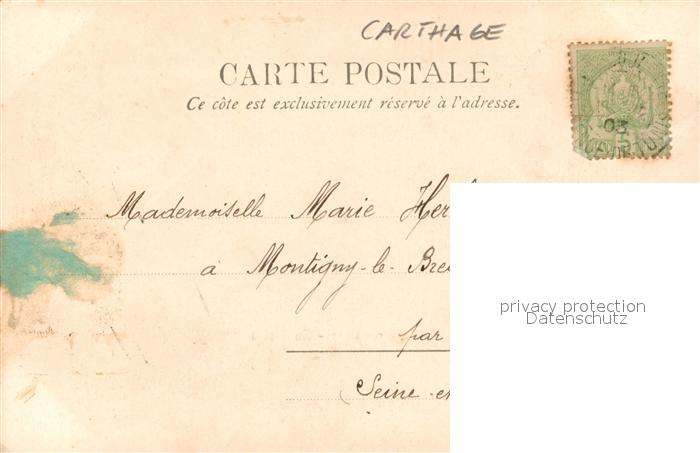 CARTHAGE
CARTE POSTALE
Ce côte est exclusivement réservé à l'adresse.
03
Mademoiselle Marie
à Montigny-le-
par
Seine-
privacy protection
Datenschutz